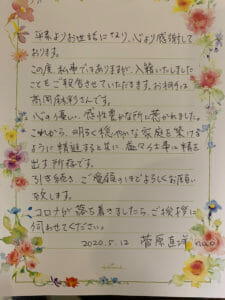 平素よりお世話になり、心より感謝して
おります。
この度、私事ではありますが、入籍いたしました
ことをご報告させていただきます。お相手は
高岡麻彩さんです。
心の優しい、感性豊かな所に惹かれました。
これから、明るく穏やかな家庭を築ける
ように精進すると共に、益々仕事に精を
出す所存です。
引き続き、ご愛顧のほどよろしくお願い
致します。
コロナが落ち着きましたら、ご挨拶に
伺わせてください。
2020.5.12 菅原直洋 nao